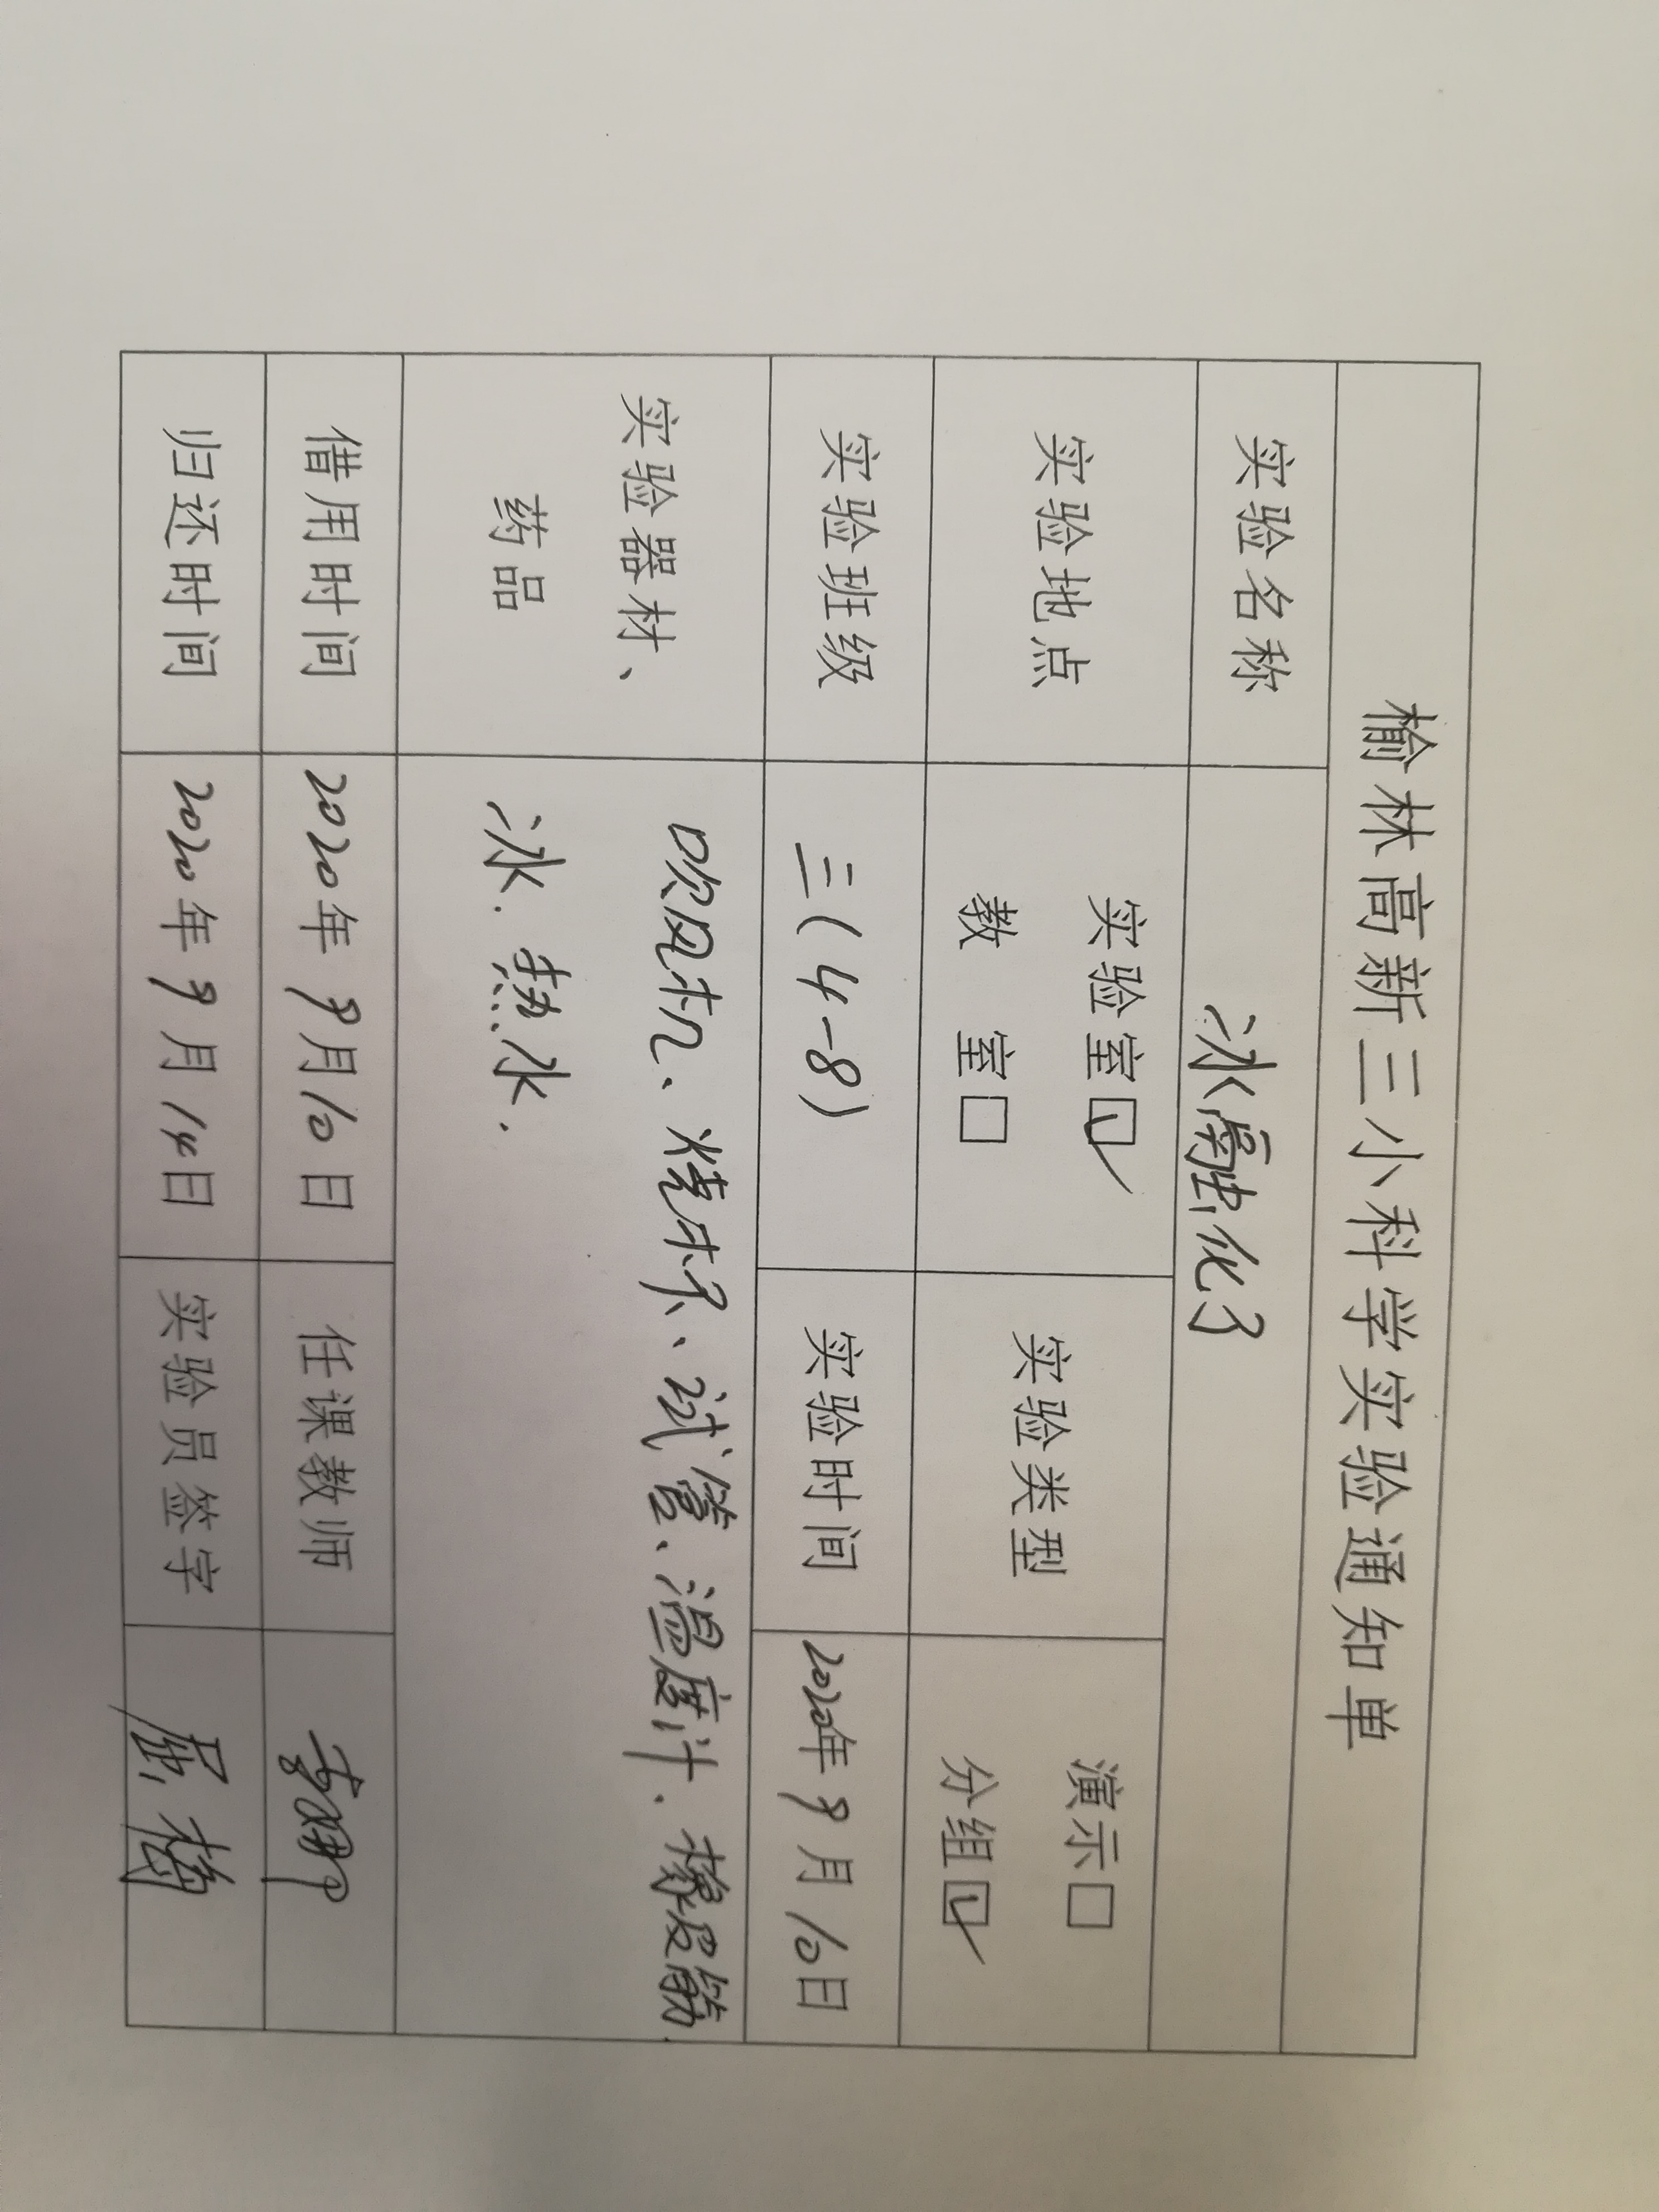 榆林高新三小科学实验通知单
实验名称 冰融化了
实验地点 实验室☑ 教 室□ 实验类型 演示□ 分组☑
实验班级 三(4-8) 实验时间 2020年9月10日
实验器材、 吹风机、烧杯、试管、温度计、橡皮筋
药品 冰、热水.
借用时间 2020年9月10日 任课教师
归还时间 2020年9月14日 实验员签字